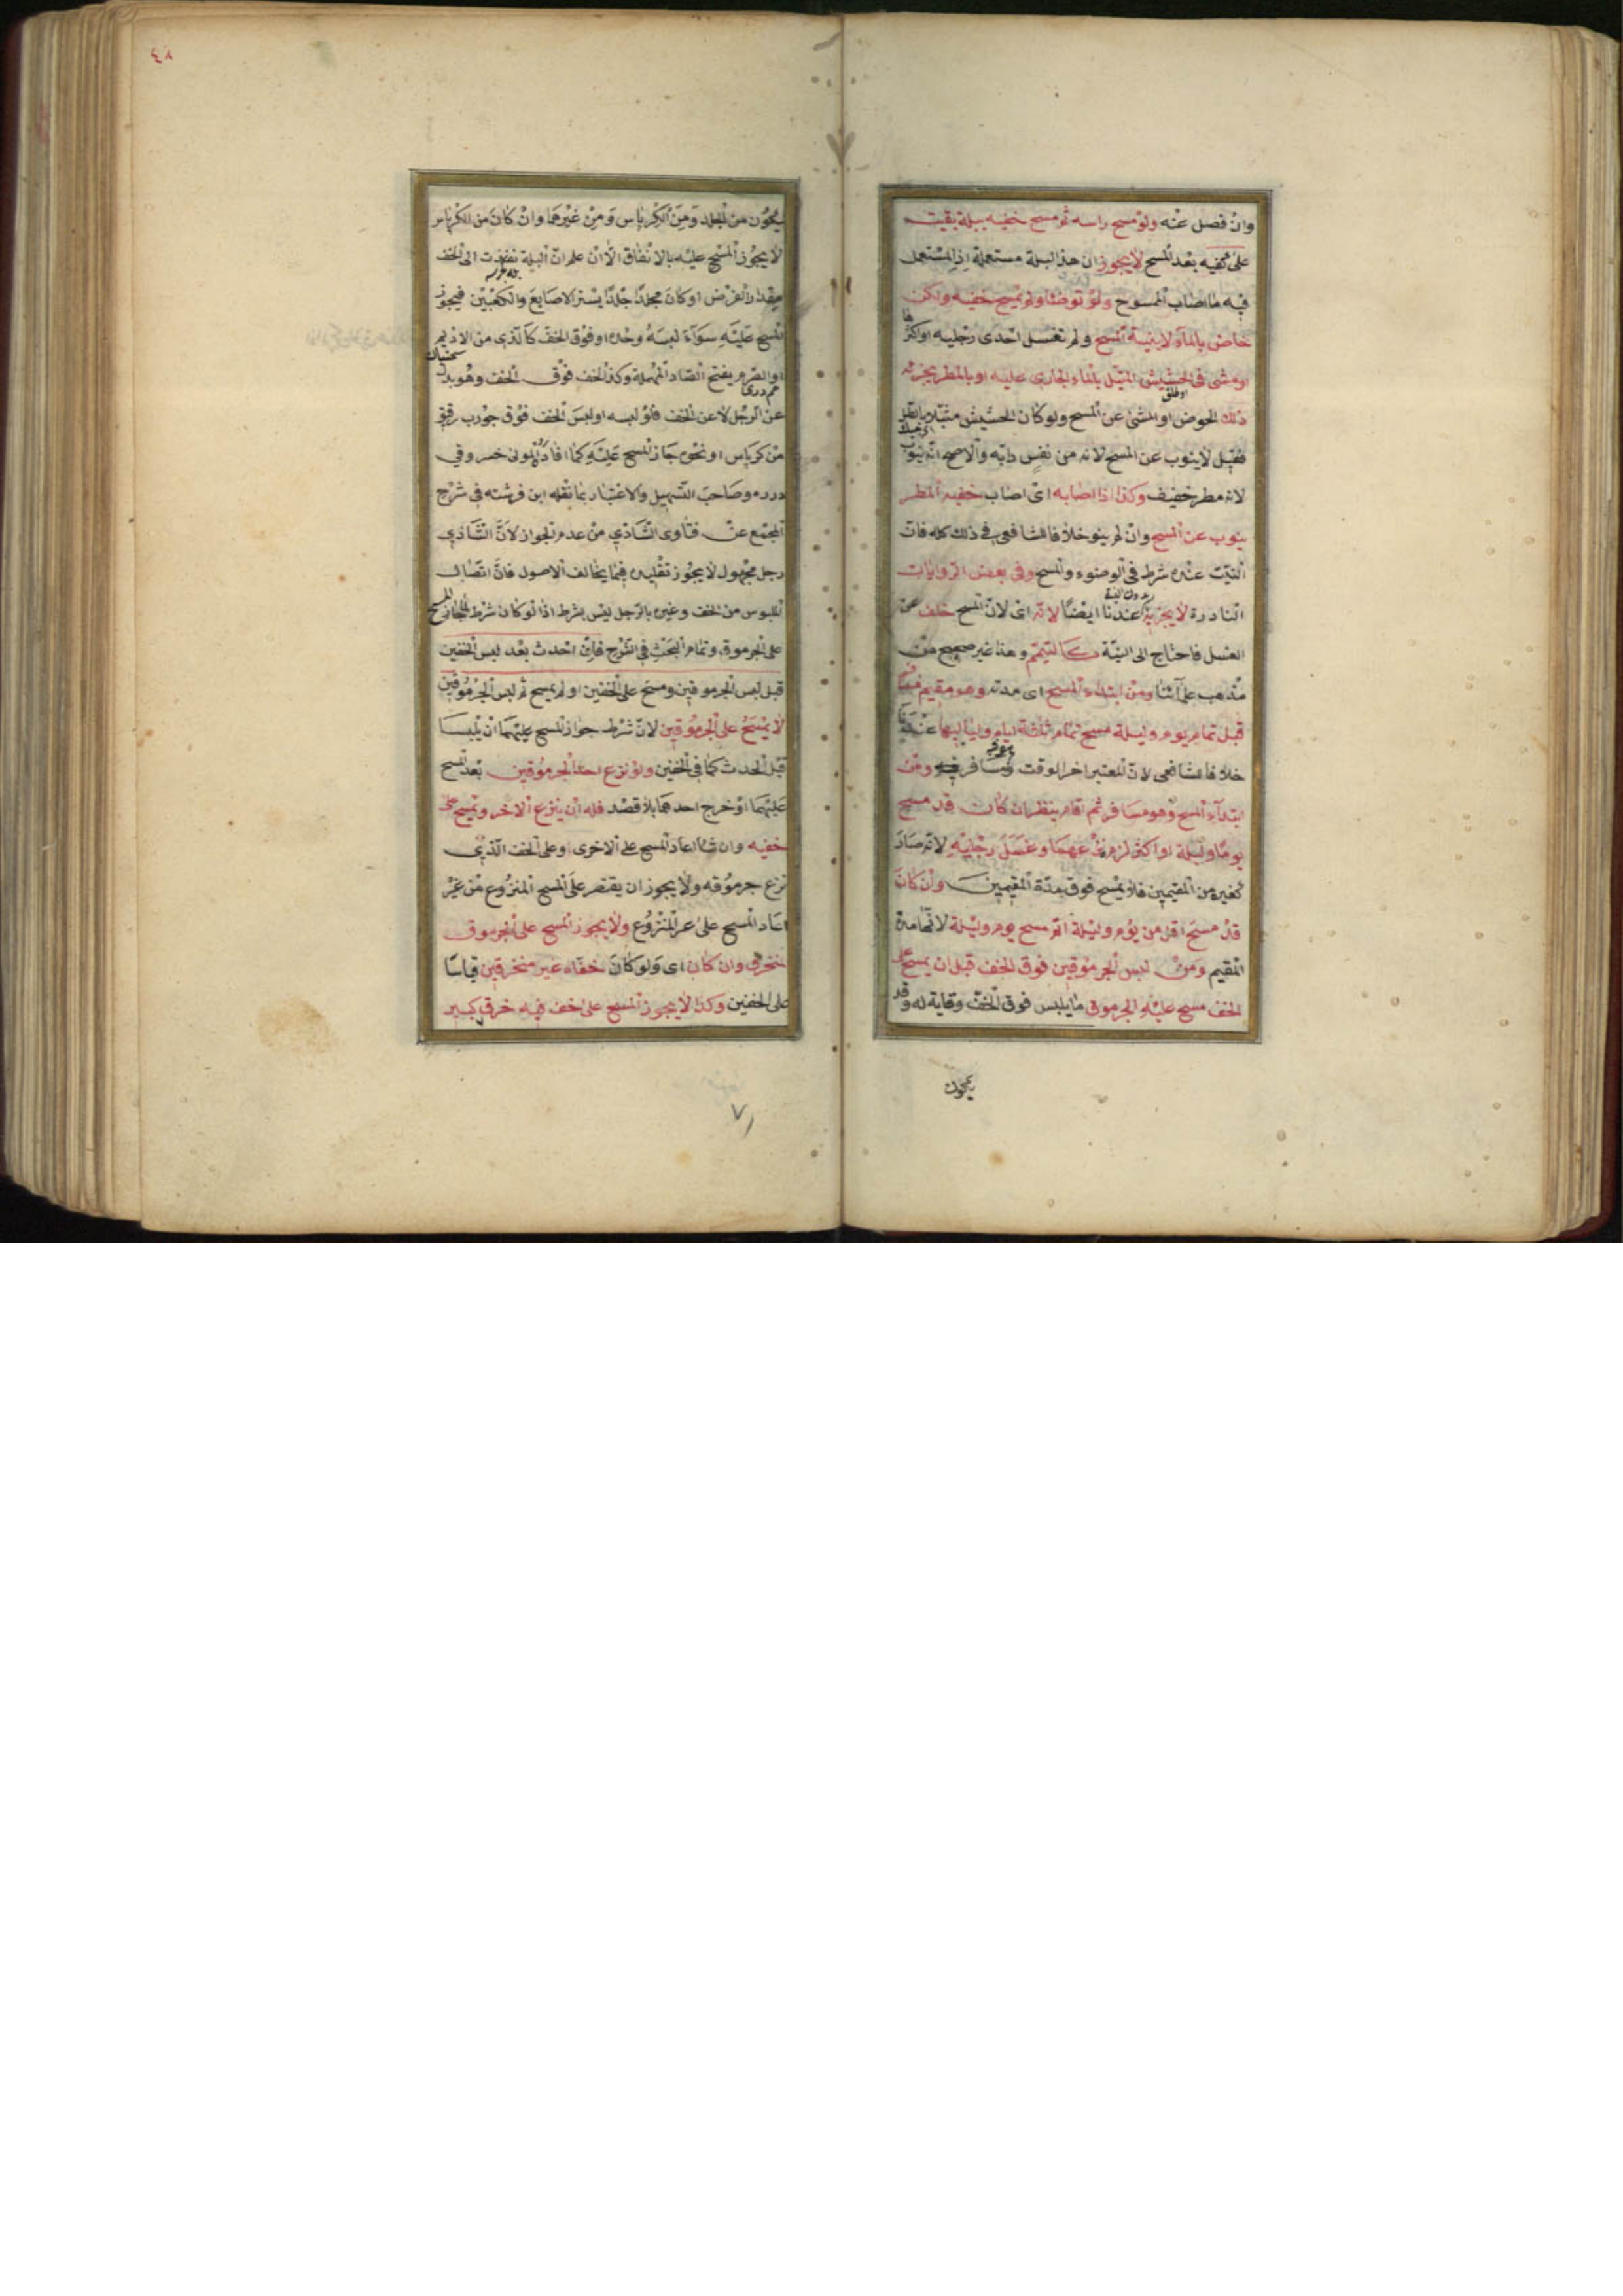 وان فصل عنه ولو مسح راسه ثم مسح خفيه ببلة بقيت
على كفيه بعد المسح لا يجوز ان هذا البلة مستعملة اذ المستعمل
فيه ما اصاب الممسوح ولو توضا ولم يمسح خفيه ولكن
خاض بالماء لا بنية المسح ولم تغسل احدى رجليه او اكثرها
او مشى في الحشيش المبتل بالماء الجاري عليه او بالمطر يجزئه
ذلك الخوض او المشى عن المسح ولو كان الحشيش مبتلا بالطل
فقيل لا ينوب عن المسح لانه من نفس دابه والاصح انه ينوب
لانه مطر خفيف وكذا اذا اصابه اى اصاب خفيه المطر
ينوب عن المسح وان لم ينو خلافا للشافعى في ذلك كله فان
النيت عنده شرط في الوضوء والمسح وفى بعض الروايات
النادرة لا يجزيه عندنا ايضا بدون النية لانه اى لان المسح خلف عن
الغسل فاحتاج الى النية كالتيمم وهذا غير صحيح من
مذهب علمائنا ومن ابتداء المسح اى مدته وهو مقيم فسافر
قبل تمام يوم وليلة مسح تمام ثلاثة ايام ولياليها عندنا
خلافا للشافعى لان المعتبر اخر الوقت ومن
ابتداء المسح وهو مسافر ثم اقام ينظر ان كان قد مسح
يوما وليلة او اكثر لزم نزعهما وغسل رجليه لانه صار
كغيره من المقيمين فلا يمسح فوق مدة المقيمين وان كان
قد مسح اقل من يوم وليلة اتم مسح يوم وليلة لانها مدة
المقيم ومن لبس الجرموقين فوق الخف قبل ان يمسح على
الخف مسح عليه الجرموق ما يلبس فوق الخف وقاية له وقد
يكون
٤٨
يكون من الجلد ومن الكرباس ومن غيرهما وان كان من الكرباس
لا يجوز المسح عليه بالاتفاق الا ان علم ان البلة نفذت الى الخف
مقدار الفرض او كان مجلدا جلدا يستر الاصابع والكعبين فيجوز
المسح عليه سواء لبسه وحده او فوق الخف كالذى من الاديم
او الصرم بفتح الصاد المهملة وكذا الخف فوق الخف وهو بدل
عن الرجل لا عن الخف فلو لبسه او لبس الخف فوق جورب رقيق
من كرباس او نحوه جاز المسح عليه كما افاده المولى خسرو في
درره وصاحب التسهيل والاعتبار بما نقله ابن فرشته في شرح
المجمع عن فتاوى الشاذي من عدم الجواز لان الشاذي
رجل مجهول لا يجوز تقليده فيما يخالف الاصول فان اتصال
الملبوس من الخف وغيره بالرجل ليس بشرط اذ لو كان شرط لما جاز المسح
على الجرموق وتمام البحث في الشرح فان احدث بعد لبس الخفين
قبل لبس الجرموقين ومسح على الخفين او لم يمسح ثم لبس الجرموقين
لا يمسح على الجرموقين لان شرط جواز المسح عليهما ان يلبسا
قبل الحدث كما في الخفين ولو نزع احد الجرموقين بعد المسح
عليهما او خرج احدهما بلا قصد فله ان ينزع الاخر ويمسح على
خفيه وان شاء اعاد المسح على الاخرى وعلى الخف الذي
نزع جرموقه ولا يجوز ان يقتصر على المسح المنزوع من غير
اعاد المسح على غير المنزوع ولا يجوز المسح على الجرموق
منخرق وان كان اى ولو كان خفاه غير منخرقين قياسا
على الخفين وكذا لا يجوز المسح على خف فيه خرق كبير
٧١